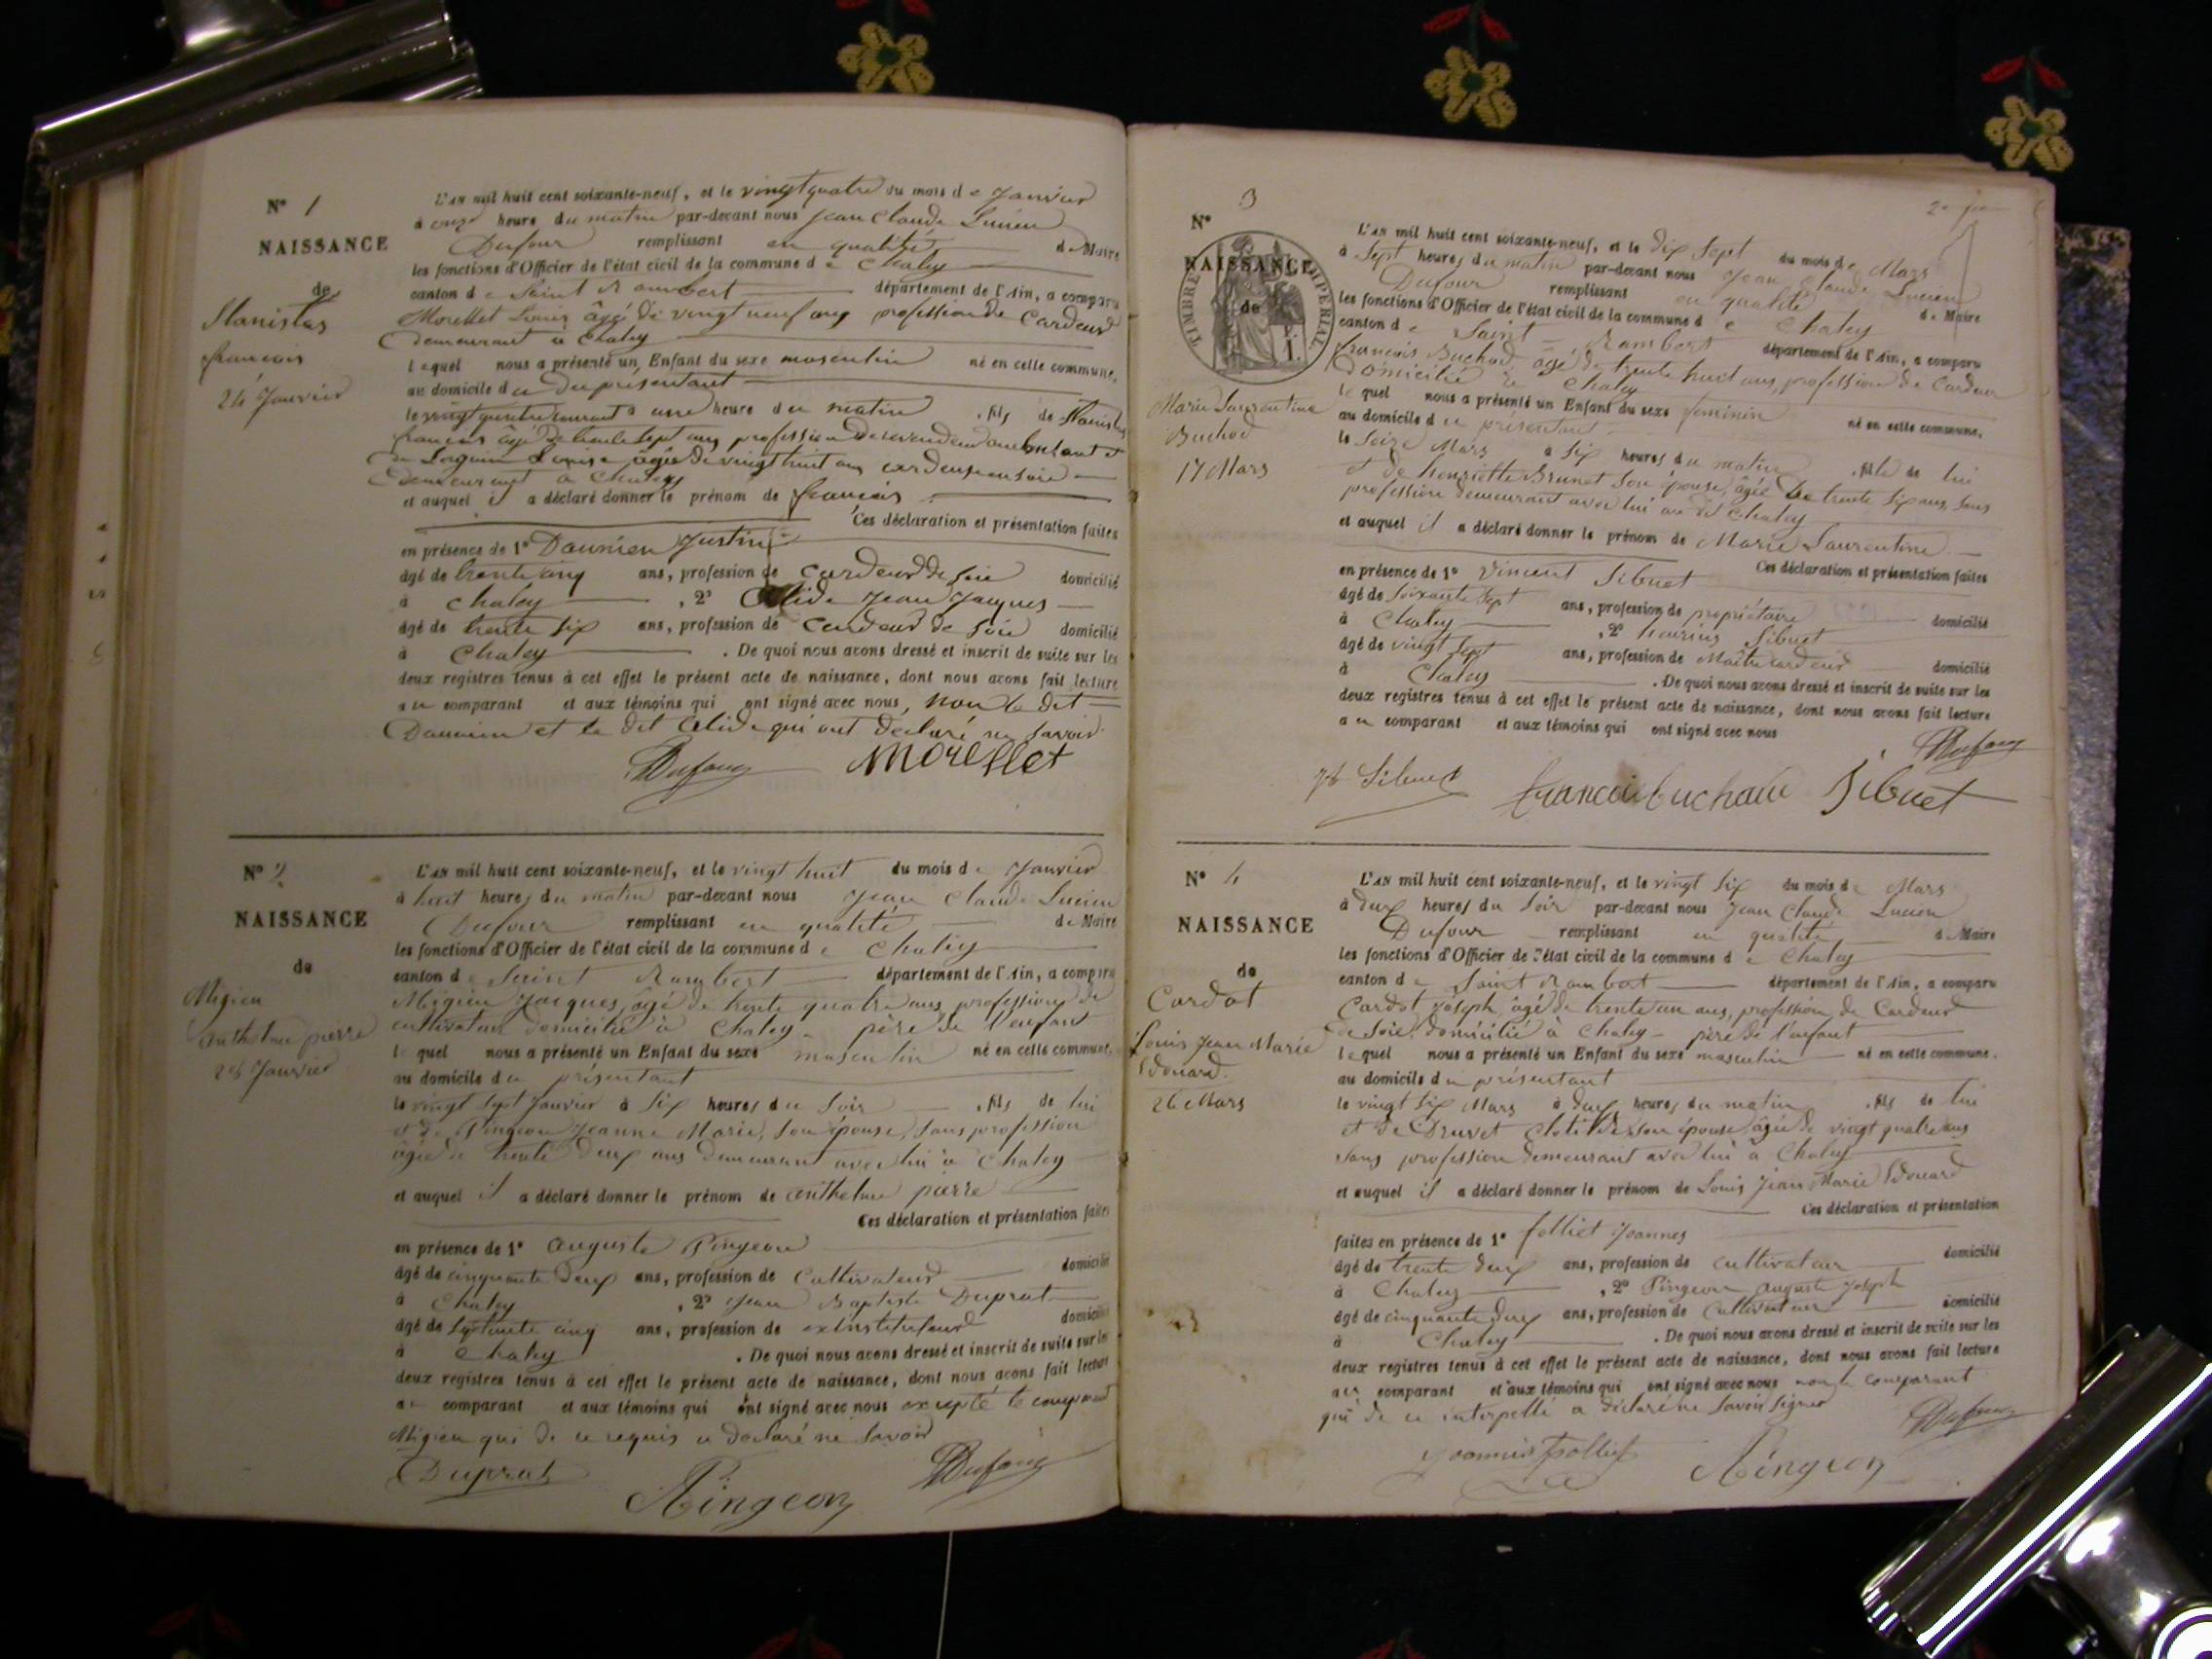 N° 1
NAISSANCE
de
Stanistas
françois
24 Janvier
L'AN mil huit cent soixante-neuf, et le vingt quatre du mois de Janvier
à onze heure du matin par-devant nous Jean Claude Lucien
Dufour remplissant en qualité de Maire
les fonctions d'Officier de l'état civil de la commune de Chaley
canton de Saint Rambert département de l'Ain, a comparu
Morellet Louis âgé de vingt neuf ans profession de Cardeur
demeurant à Chaley
lequel nous a présenté un Enfant du sexe masculin né en cette commune,
au domicile du présentant
le vingt quatre courant à une heure du matin , fils de Stanistas
françois âgé de trente sept ans profession de revendeur ambulant et
de Louise âgée de vingt huit ans cardeuse en soie
demeurant à Chaley
et auquel il a déclaré donner le prénom de françois
Ces déclaration et présentation faites
en présence de 1° Daumien Justin
âgé de trente cinq ans, profession de Cardeur de soie domicilié
à Chaley , 2° Jean Jacques
âgé de trente six ans, profession de Cardeur de soie domicilié
à Chaley . De quoi nous avons dressé et inscrit de suite sur les
deux registres tenus à cet effet le présent acte de naissance, dont nous avons fait lecture
au comparant et aux témoins qui ont signé avec nous, non le dit
Daumien et le dit qui ont déclaré ne savoir
Dufour Morellet
N° 2
NAISSANCE
de
Migieu
anthelme pierre
28 Janvier
L'AN mil huit cent soixante-neuf, et le vingt huit du mois de Janvier
à huit heures du matin par-devant nous Jean Claude Lucien
Dufour remplissant en qualité de Maire
les fonctions d'Officier de l'état civil de la commune de Chaley
canton de Saint Rambert département de l'Ain, a comparu
Migieu Jacques, âgé de trente quatre ans, profession de
cultivateur domicilié à Chaley père de l'enfant
lequel nous a présenté un Enfant du sexe masculin né en cette commune,
au domicile du présentant
le vingt sept Janvier à six heures du soir , fils de lui
et de Pingeon Jeanne Marie, son épouse, sans profession
âgée de trente deux ans demeurant avec lui à Chaley
et auquel il a déclaré donner le prénom de anthelme pierre
Ces déclaration et présentation faites
en présence de 1° auguste Pingeon
âgé de cinquante deux ans, profession de Cultivateur domicilié
à Chaley , 2° Jean Baptiste Duprat
âgé de septante cinq ans, profession de exinstituteur domicilié
à Chaley . De quoi nous avons dressé et inscrit de suite sur les
deux registres tenus à cet effet le présent acte de naissance, dont nous avons fait lecture
au comparant et aux témoins qui ont signé avec nous excepté le comparant
Migieu qui de ce requis a déclaré ne savoir
Duprat Pingeon Dufour
N° 3
NAISSANCE
de
TIMBRE IMPERIAL
Marie Laurentine
Buchod
17 Mars
L'AN mil huit cent soixante-neuf, et le dix sept du mois de Mars
à Sept heures du matin par-devant nous Jean Claude Lucien
Dufour remplissant en qualité de Maire
les fonctions d'Officier de l'état civil de la commune de Chaley
canton de Saint Rambert département de l'Ain, a comparu
françois Buchod, âgé de trente huit ans, profession de Cardeur
Domicilié à Chaley
lequel nous a présenté un Enfant du sexe féminin né en cette commune,
au domicile du présentant
le Seize Mars à six heures du matin , fille de lui
et de henriette Brunet son épouse, âgée de trente six ans, sans
profession demeurant avec lui au dit Chaley
et auquel il a déclaré donner le prénom de Marie Laurentine
Ces déclaration et présentation faites
en présence de 1° Vincent Sibuet
âgé de soixante sept ans, profession de propriétaire domicilié
à Chaley , 2° Sibuet
âgé de vingt sept ans, profession de Maître cardeur domicilié
à Chaley . De quoi nous avons dressé et inscrit de suite sur les
deux registres tenus à cet effet le présent acte de naissance, dont nous avons fait lecture
au comparant et aux témoins qui ont signé avec nous
Dufour
Sibuet francois buchod Sibuet
N° 4
NAISSANCE
de
Cardot
Louis Jean Marie
Edouard
26 Mars
L'AN mil huit cent soixante-neuf, et le vingt six du mois de Mars
à deux heures du soir par-devant nous Jean Claude Lucien
Dufour remplissant en qualité de Maire
les fonctions d'Officier de l'état civil de la commune de Chaley
canton de Saint Rambert département de l'Ain, a comparu
Cardot Joseph, âgé de trente un ans, profession de Cardeur
de Soie, domicilié à Chaley père de l'enfant
lequel nous a présenté un Enfant du sexe masculin né en cette commune,
au domicile du présentant
le vingt six Mars à deux heures du matin , fils de lui
et de Druvet Clotilde son épouse âgée de vingt quatre ans
sans profession demeurant avec lui à Chaley
et auquel il a déclaré donner le prénom de Louis Jean Marie Edouard
Ces déclaration et présentation
faites en présence de 1° folliet Joannes
âgé de trente deux ans, profession de cultivateur domicilié
à Chaley , 2° Pingeon auguste Joseph
âgé de cinquante deux ans, profession de Cultivateur domicilié
à Chaley . De quoi nous avons dressé et inscrit de suite sur les
deux registres tenus à cet effet le présent acte de naissance, dont nous avons fait lecture
au comparant et aux témoins qui ont signé avec nous non le comparant
qui de ce interpellé a déclaré ne savoir signer
Dufour
Joannes folliet Pingeon